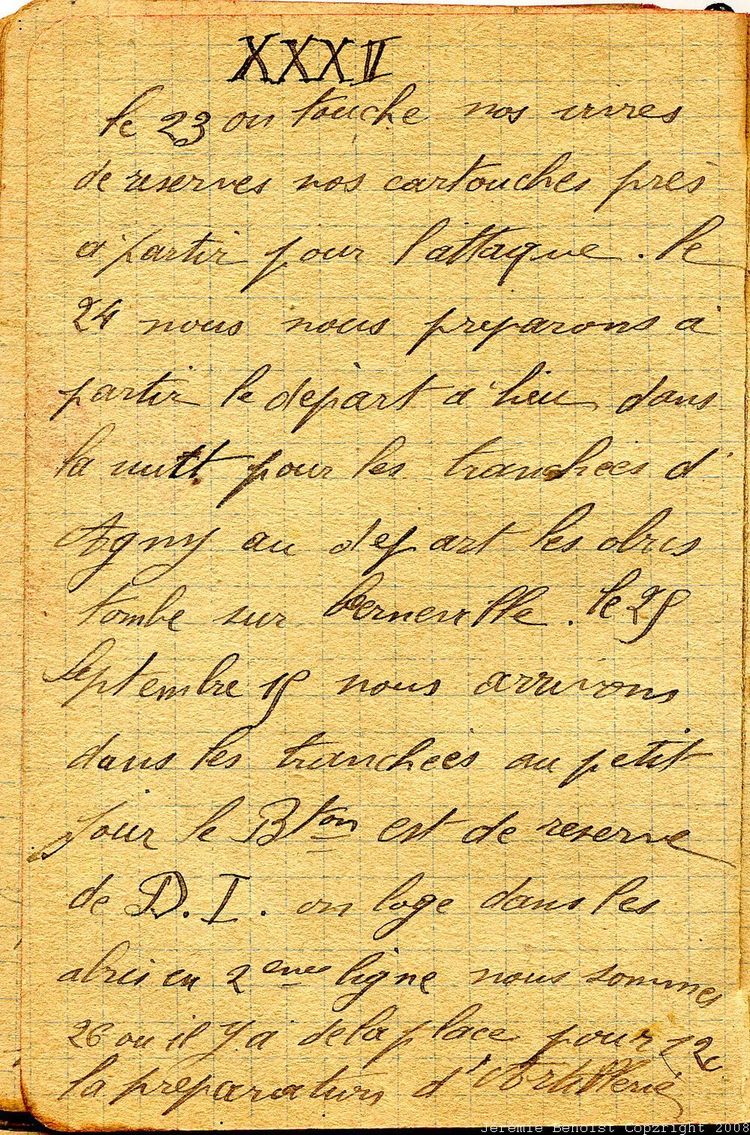 XXXII
le 23 on touche nos vivres
de reserves nos cartouches près
a partir pour l'attaque. le
24 nous nous preparons a
partir le départ a lieu dans
la nuit pour les tranchées d'
Agny au départ les obus
tombe sur Berneville. le 25
Septembre 15 nous arrivons
dans les tranchées au petit
jour le Bton est de reserve
de D.I. on loge dans les
abris en 2eme ligne nous sommes
26 ou il y a de la place pour 12
la preparation d'Artillerie
Jeremie Benoist Copzright 2008